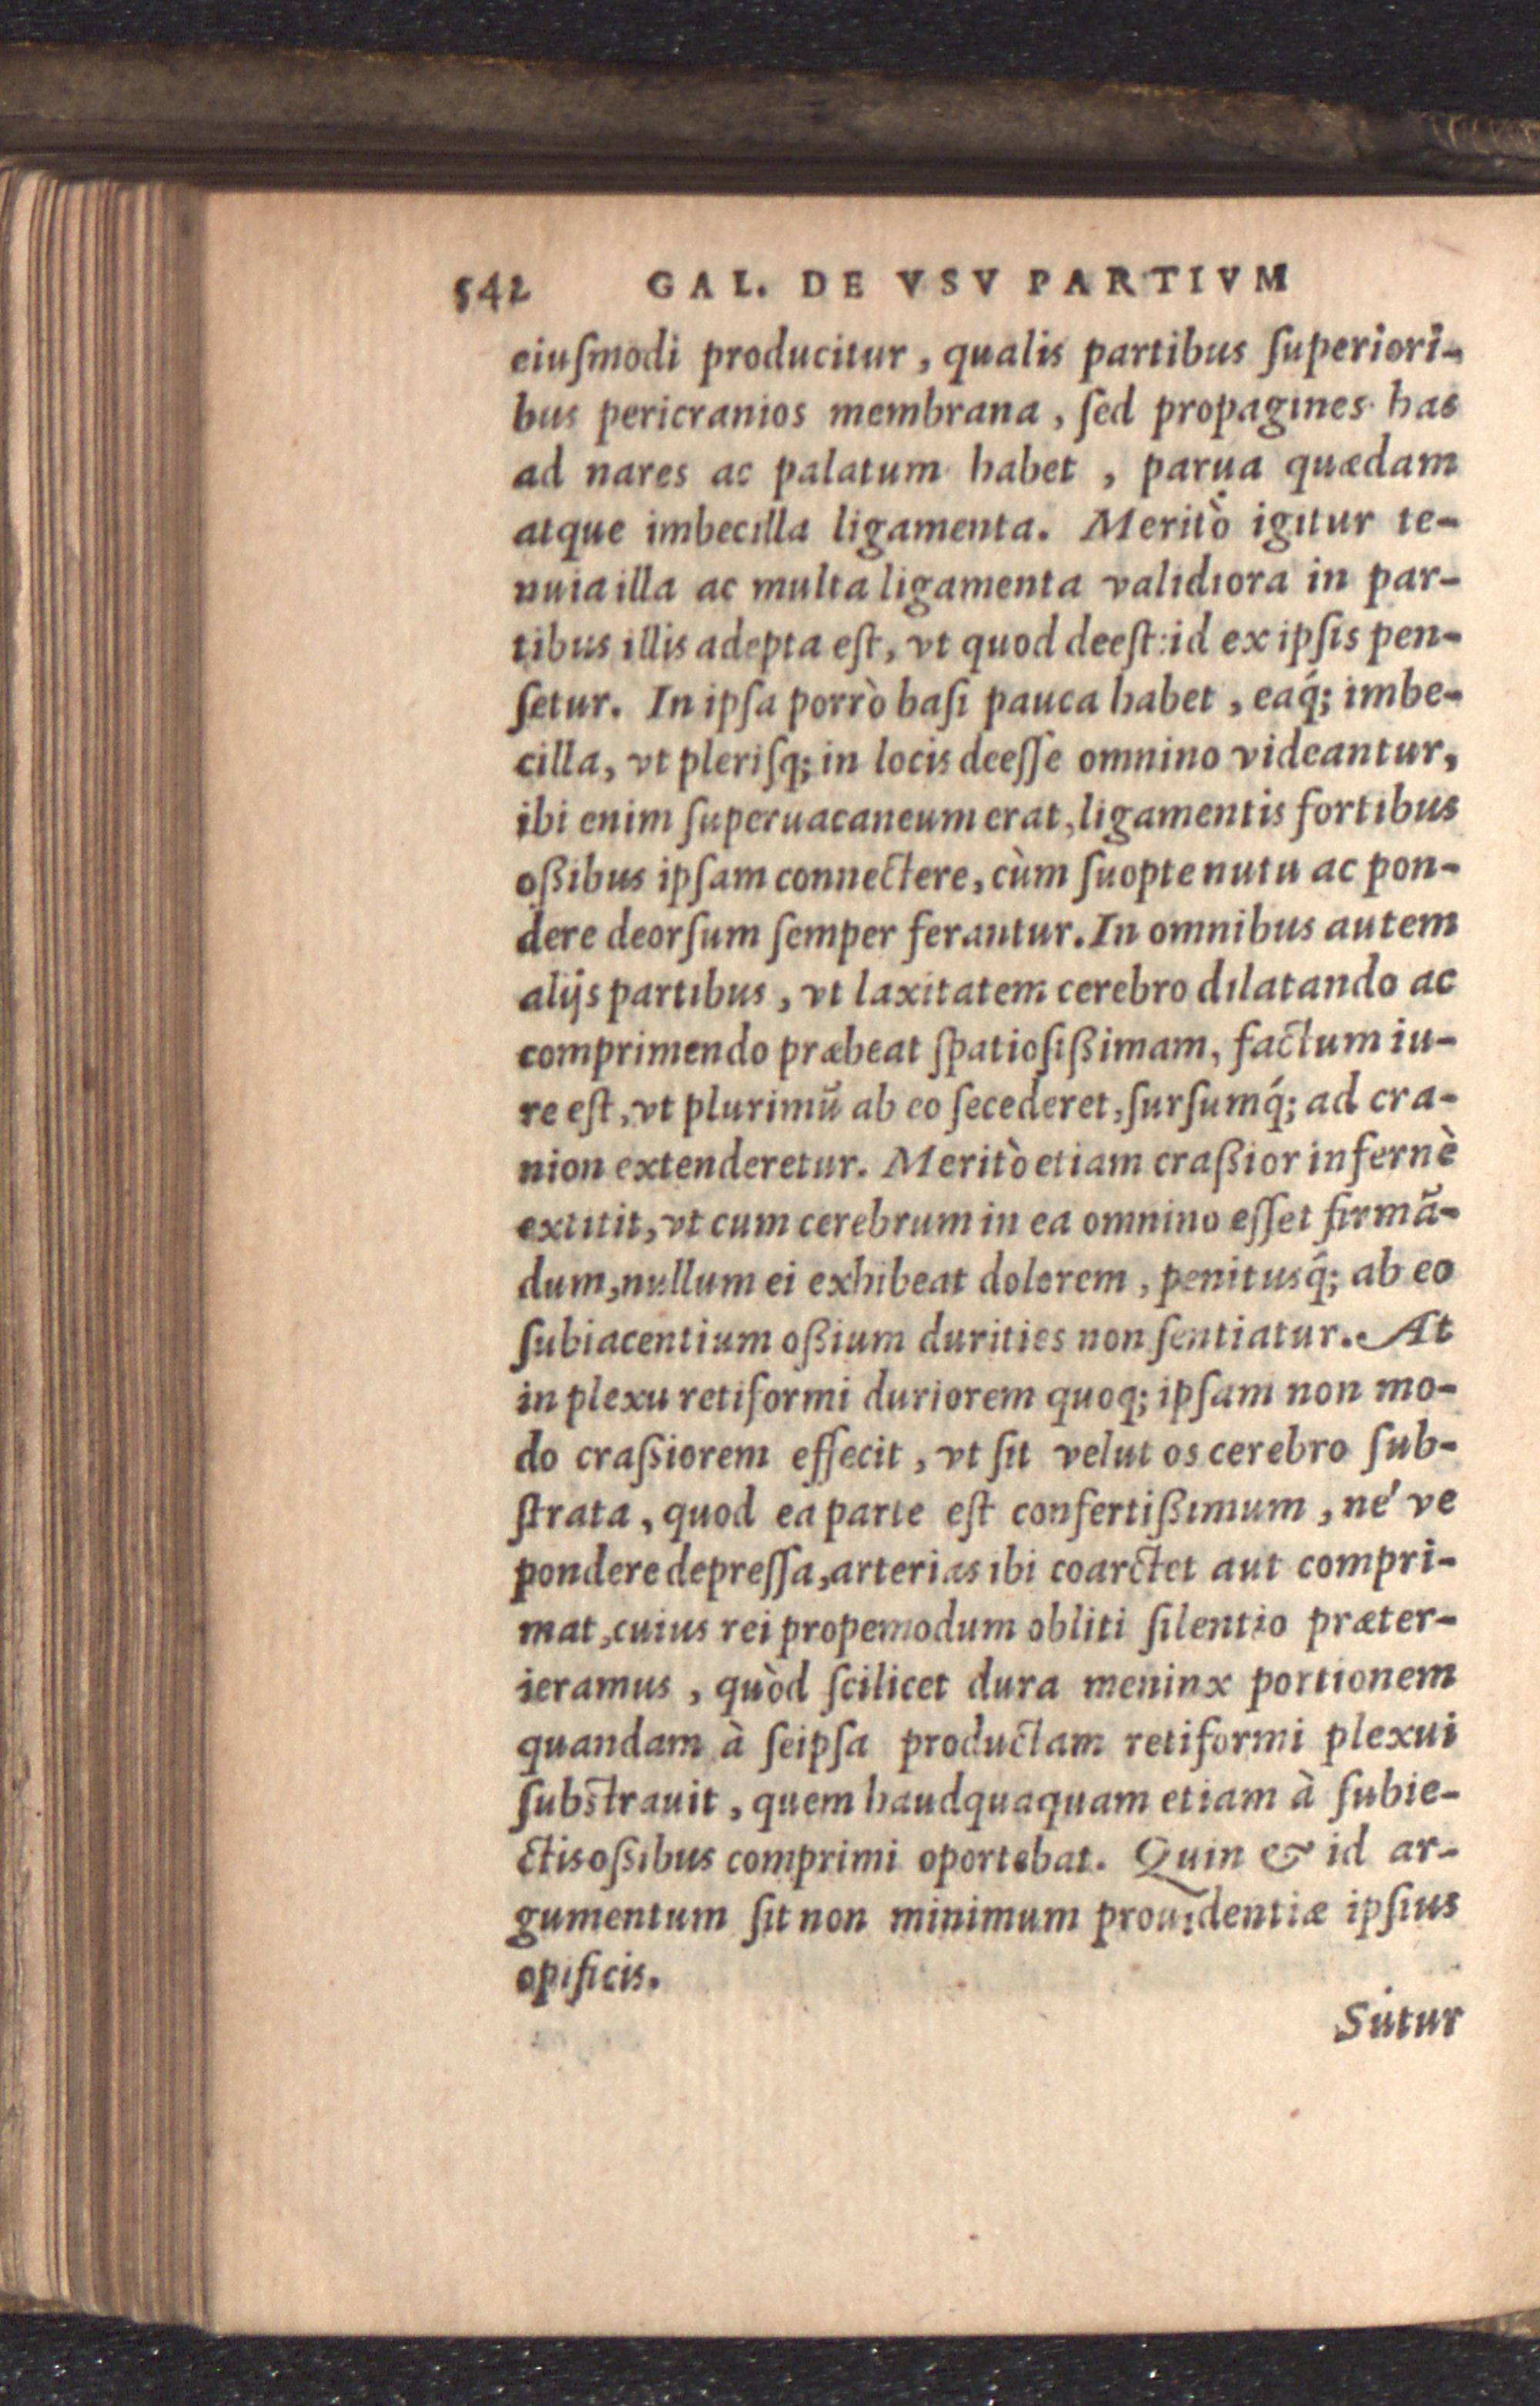 542 GAL. DE VSV PARTIVM
eiuſmodi producitur, qualis partibus ſuperiori-
bus pericranios membrana, ſed propagines has
ad nares ac palatum habet, parua quædam
atque imbecilla ligamenta. Meritò igitur te-
nuia illa ac multa ligamenta validiora in par-
tibus illis adepta eſt, vt quod deeſt: id ex ipſis pen-
ſetur. In ipſa porrò baſi pauca habet, eaq́; imbe-
cilla, vt pleriſq; in locis deeſſe omnino videantur,
ibi enim ſuperuacaneum erat, ligamentis fortibus
oßibus ipſam connectere, cùm ſuopte nutu ac pon-
dere deorſum ſemper ferantur. In omnibus autem
alijs partibus, vt laxitatem cerebro dilatando ac
comprimendo præbeat ſpatioſißimam, factum iu-
re eſt, vt plurimũ ab eo ſecederet, ſurſumq́; ad cra-
nion extenderetur. Meritò etiam craßior infernè
extitit, vt cum cerebrum in ea omnino eſſet firmã-
dum, nullum ei exhibeat dolorem, penitusq́; ab eo
ſubiacentium oßium durities non ſentiatur. At
in plexu retiformi duriorem quoq; ipſam non mo-
do craßiorem effecit, vt ſit velut os cerebro ſub-
ſtrata, quod ea parte eſt confertißimum, né ve
pondere depreſſa, arterias ibi coarctet aut compri-
mat, cuius rei propemodum obliti ſilentio præter-
ieramus, quòd ſcilicet dura meninx portionem
quandam à ſeipſa productam retiformi plexui
ſubſtrauit, quem haudquaquam etiam à ſubie-
ctis oßibus comprimi oportebat. Quin & id ar-
gumentum ſit non minimum prouidentiæ ipſius
opificis.
Sutur